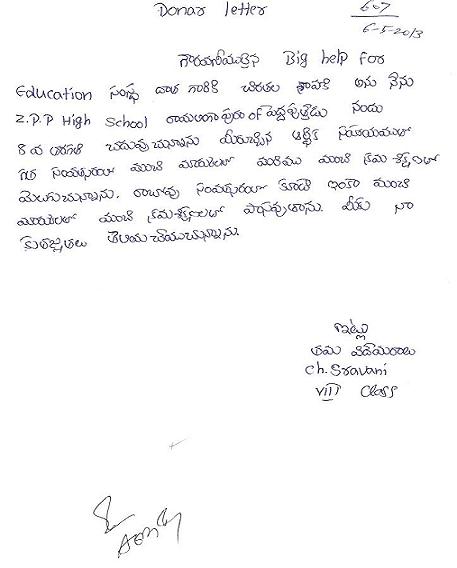 Donar letter
607
6-5-2013
గౌరవనీయులైన Big help for
Education సంస్థ దాత గారికి చిరతల శ్రావణి అను నేను
Z.P.P High School రాయలంగాపురం of పెద్దపుత్తేడు నందు
8 వ తరగతి చదువుచున్నాను మీరుచ్చిన ఆర్థిక సహాయముతో
గత సంవత్సరంలో మంచి మార్కులతో మరియు మంచి క్రమశిక్షణతో
మెలగుచున్నాను. రాబోవు సంవత్సరంలో కూడా ఇంకా మంచి
మార్కులతో మంచి క్రమశిక్షణలతో పాసవుతాను. మీకు నా
కృతజ్ఞతలు తెలియచేయుచున్నాను.
ఇట్లు
తమ విధేయురాలు
Ch. Sravani
VIII Class